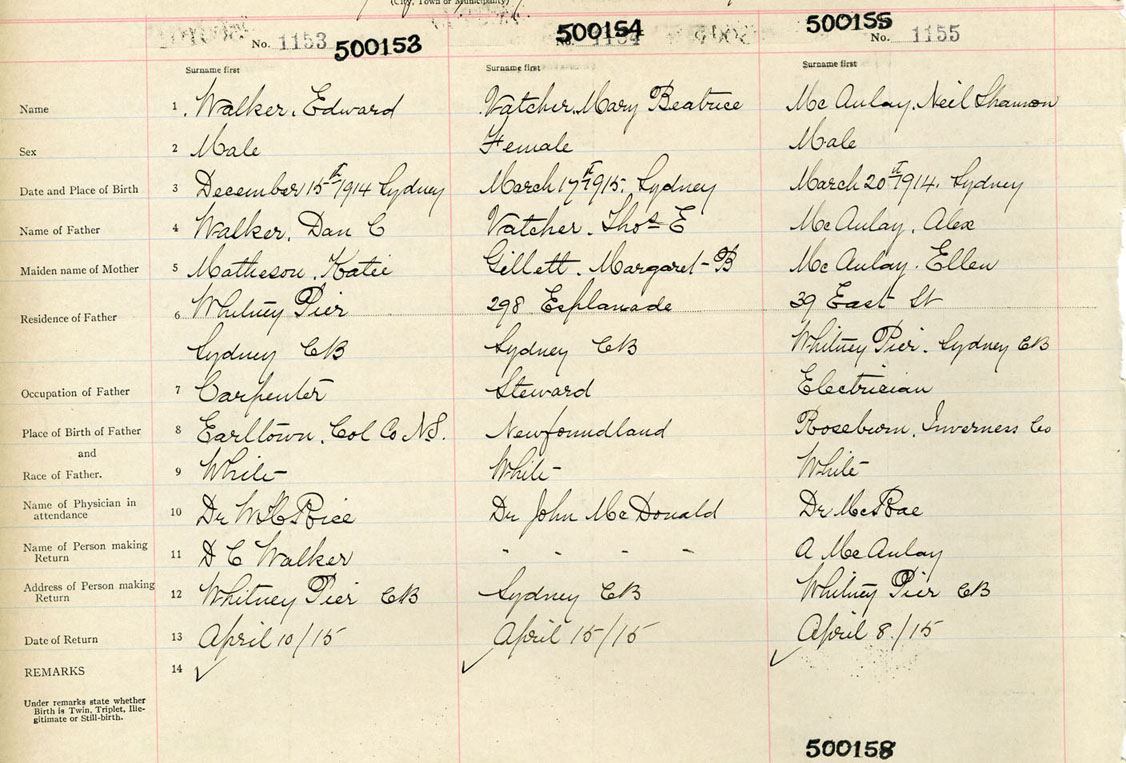 (City, Town or Municipality)
No. 1153 500153 500154 No. 1154 500155 No. 1155
Surname first Surname first Surname first
Name 1 Walker. Edward Vatcher. Mary Beatrice Mc Aulay. Neil Shannon
Sex 2 Male Female Male
Date and Place of Birth 3 December 15th 1914 Sydney March 17th 1915. Sydney March 20th 1914. Sydney
Name of Father 4 Walker. Dan C Vatcher. Thos E Mc Aulay. Alex
Maiden name of Mother 5 Matheson. Katie Gillett. Margaret B Mc Aulay. Ellen
Residence of Father 6 Whitney Pier 298 Esplanade 39 East St
Sydney CB Sydney CB Whitney Pier. Sydney CB
Occupation of Father 7 Carpenter Steward Electrician
Place of Birth of Father 8 Earltown. Col Co NS. Newfoundland Roseburn. Inverness Co
and
Race of Father. 9 White White White
Name of Physician in attendance 10 Dr W Rice Dr John McDonald Dr McRae
Name of Person making Return 11 D C Walker " " " " A McAulay
Address of Person making Return 12 Whitney Pier CB Sydney CB Whitney Pier CB
Date of Return 13 April 10/15 April 15/15 April 8./15
REMARKS 14 ✓ ✓ ✓
Under remarks state whether
Birth is Twin, Triplet, Ille-
gitimate or Still-birth.
500158